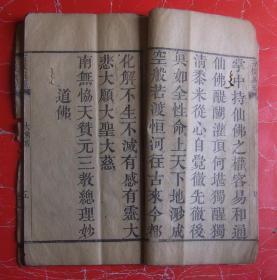 掌中持仙佛之權易和通
仙佛醍醐灌頂何獨醒獨
清黍來從心自覺徹先徹後
與如全性命上天下地渺成
空般若渡恒河在古來今都
化解不生不滅有感有靈大
悲大願大聖大慈
南無協天贊元三教總理妙
道佛